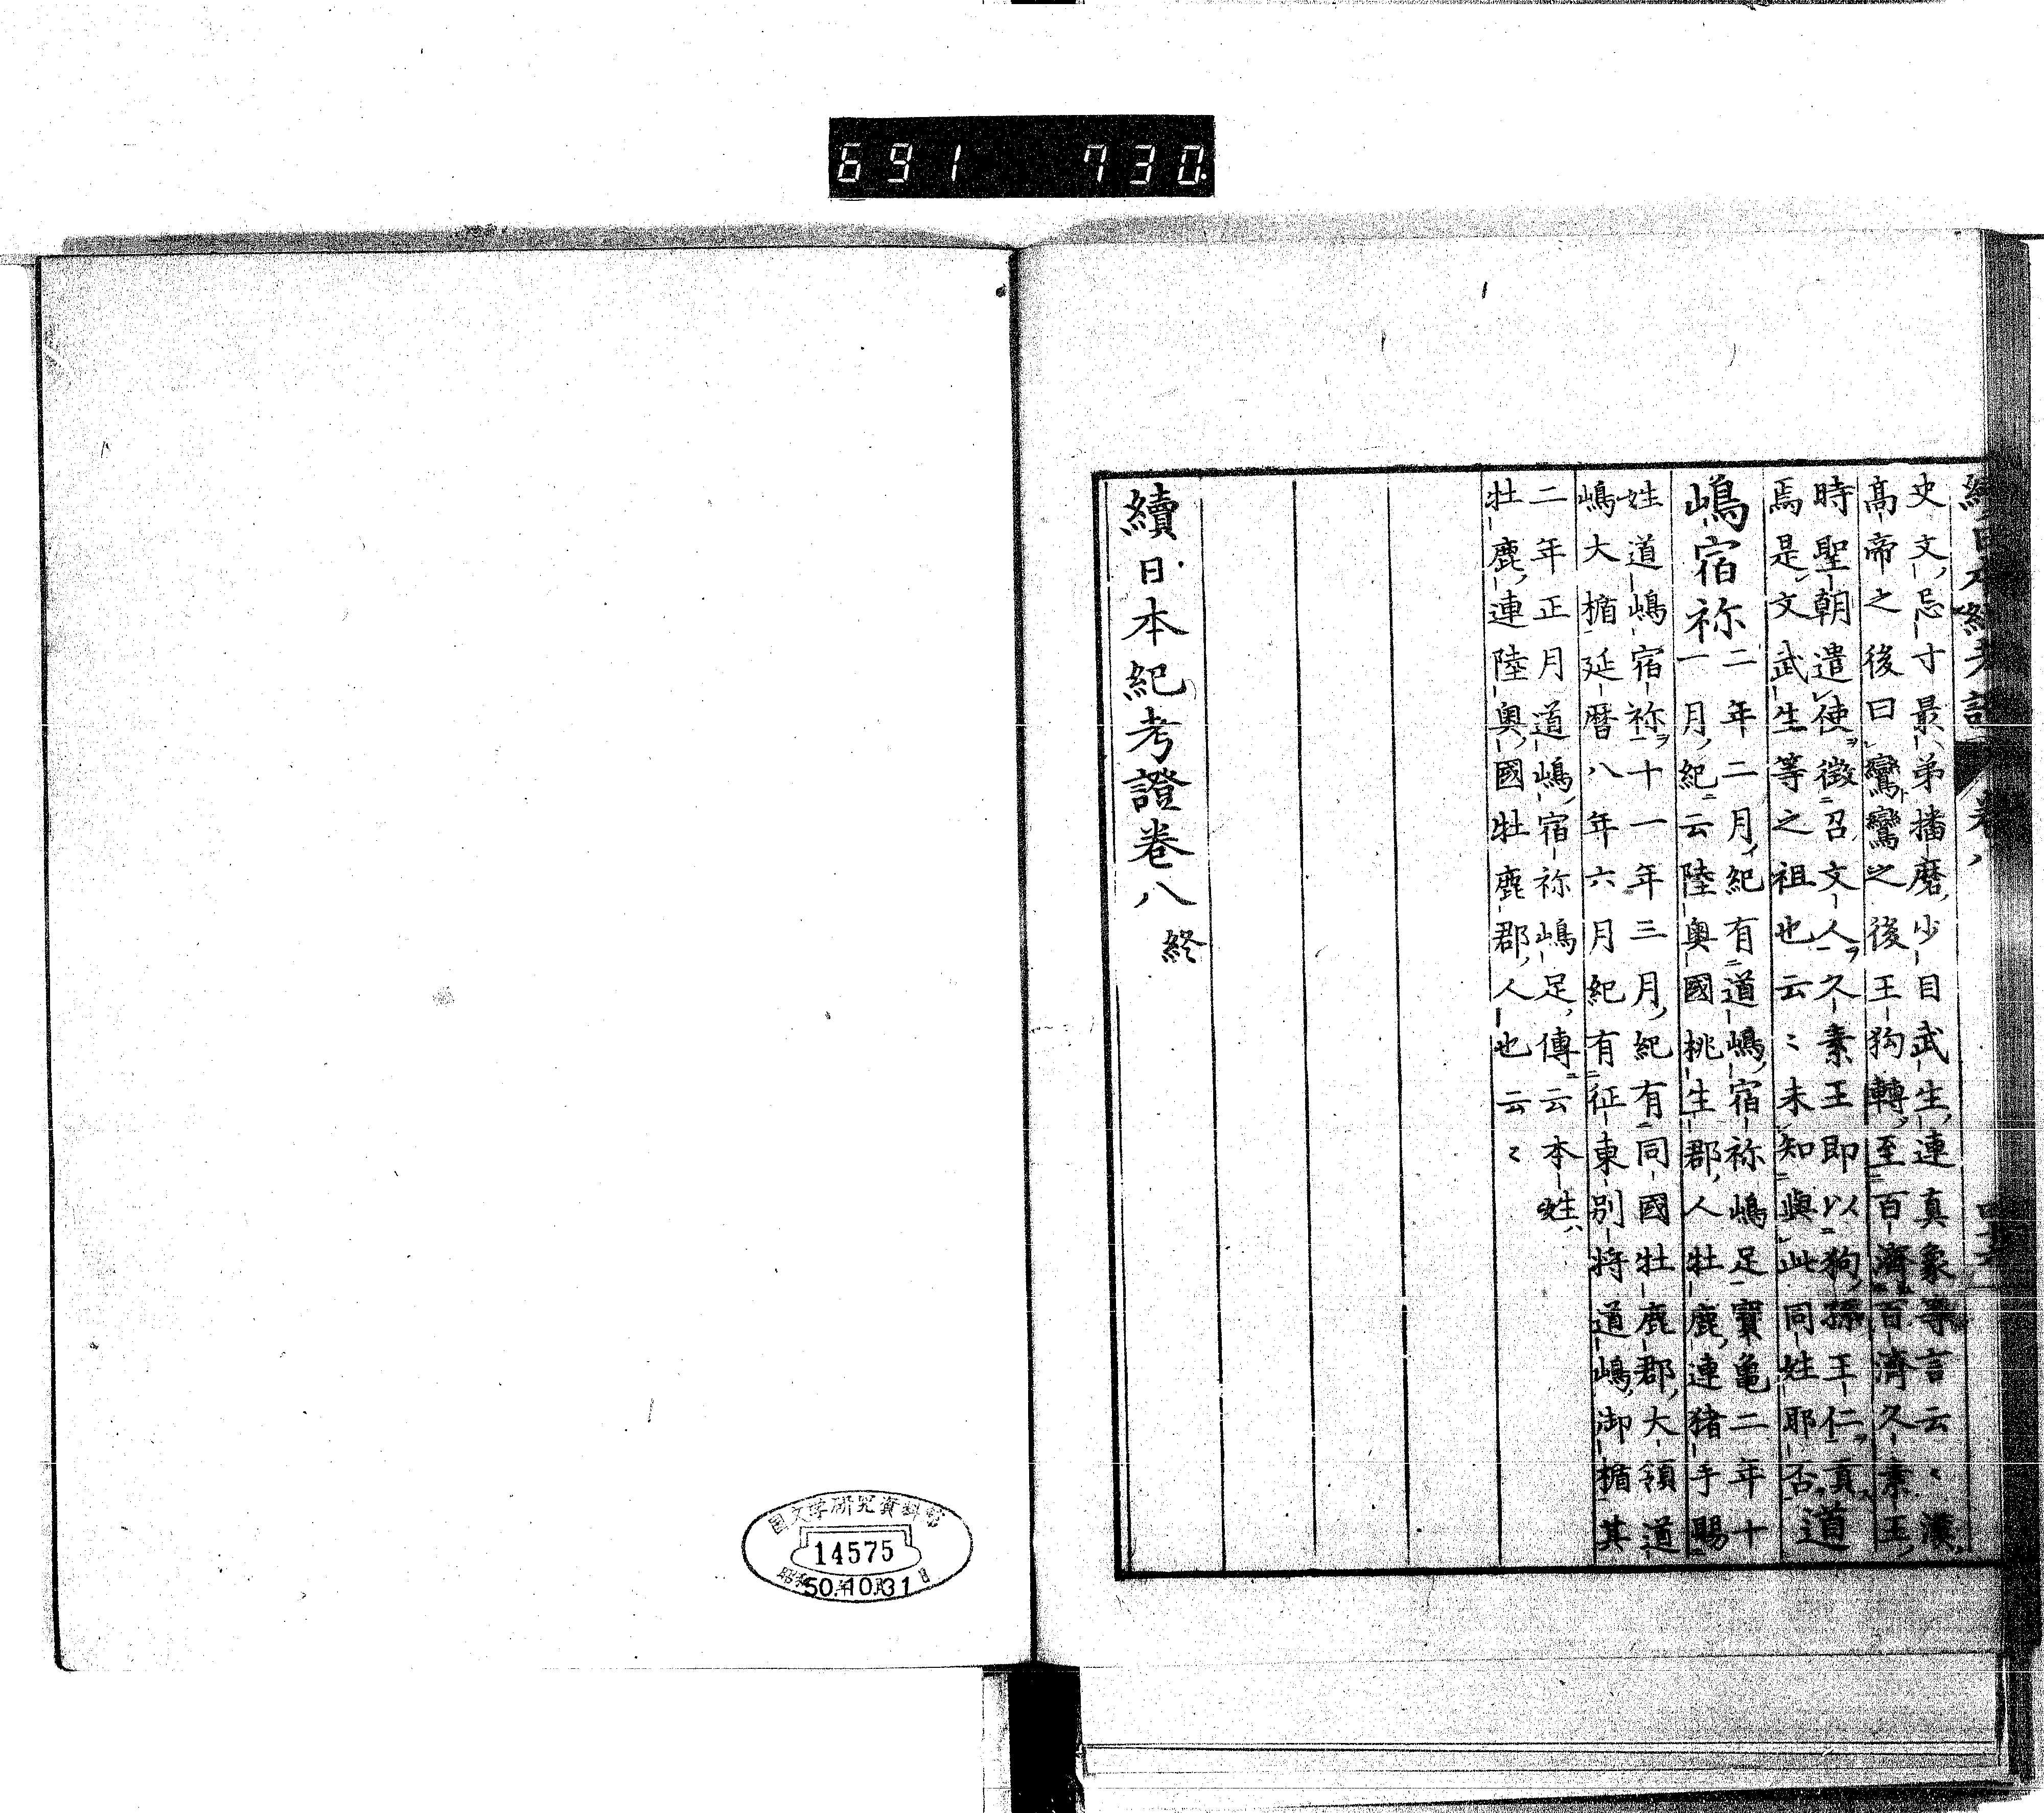 691 730
續日本紀考證 卷八
史文忌寸最弟播磨少目武生連真象等言云〻漢
高帝之後曰鸞鸞之後王狗轉至百濟百濟久素王
時聖朝遣使徵召文人久素王即以狗孫王仁貢
焉是文武生等之祖也云〻未知與此同姓耶否道
嶋宿祢二年二月紀有道嶋宿祢嶋足寶亀二年十
一月紀云陸奥國桃生郡人牡鹿連猪手賜
姓道嶋宿祢十一年三月紀有同國牡鹿郡大領道
嶋大楯延暦八年六月紀有征東別将道嶋御楯其
二年正月道嶋宿祢嶋足傳云本姓
牡鹿連陸奥國牡鹿郡人也云〻
續日本紀考證卷八 終
国文学研究資料館
14575
昭和50.10.31